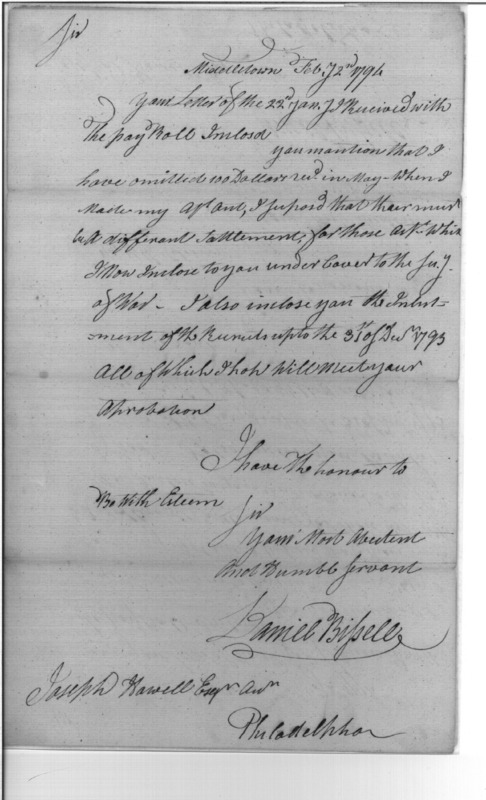 Sir
Middletown Feby 2nd 1794
your Letter of the 22d Jany I Recieved with
the pay Roll Inclosd
you mantion that I
have omitted 100 Dollars recd in May - When I
Made my I suposd that thair must
be A differant Sattlement, for those Which
I Now Inclose to you under Cover to the Secy
of War - I also inclose you the Inlist-
-ment of the Recruits up to the 31st of Decr 1793
All of Which I hop Will Meet your
Aprobation
I have the honour to
Be With Esteem
Sir
your Most Abedent
And Humble Servant
Daniel Bissell
Joseph Howell Esqr
Philadelphia